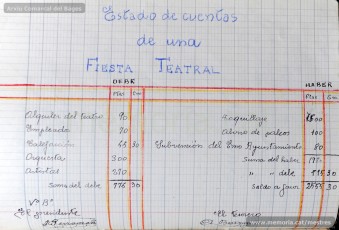 Arxiu Comarcal del Bages
Estado de cuentas
de una
FIESTA TEATRAL
DEBE
HABER
Ptas Cm
Ptas Cm
Alquiler del teatro 90
Empleada 20
Calefacción 45 30
Orquesta 300
Suma del debe 776 30
Taquillaje 1500
Abono de palcos 100
Subvención del Ayuntamiento 80
Suma del haber
" " debe 776 30
Saldo a favor
Vº Bº
El presidente
El Tesorero
www.memoria.cat/mestres